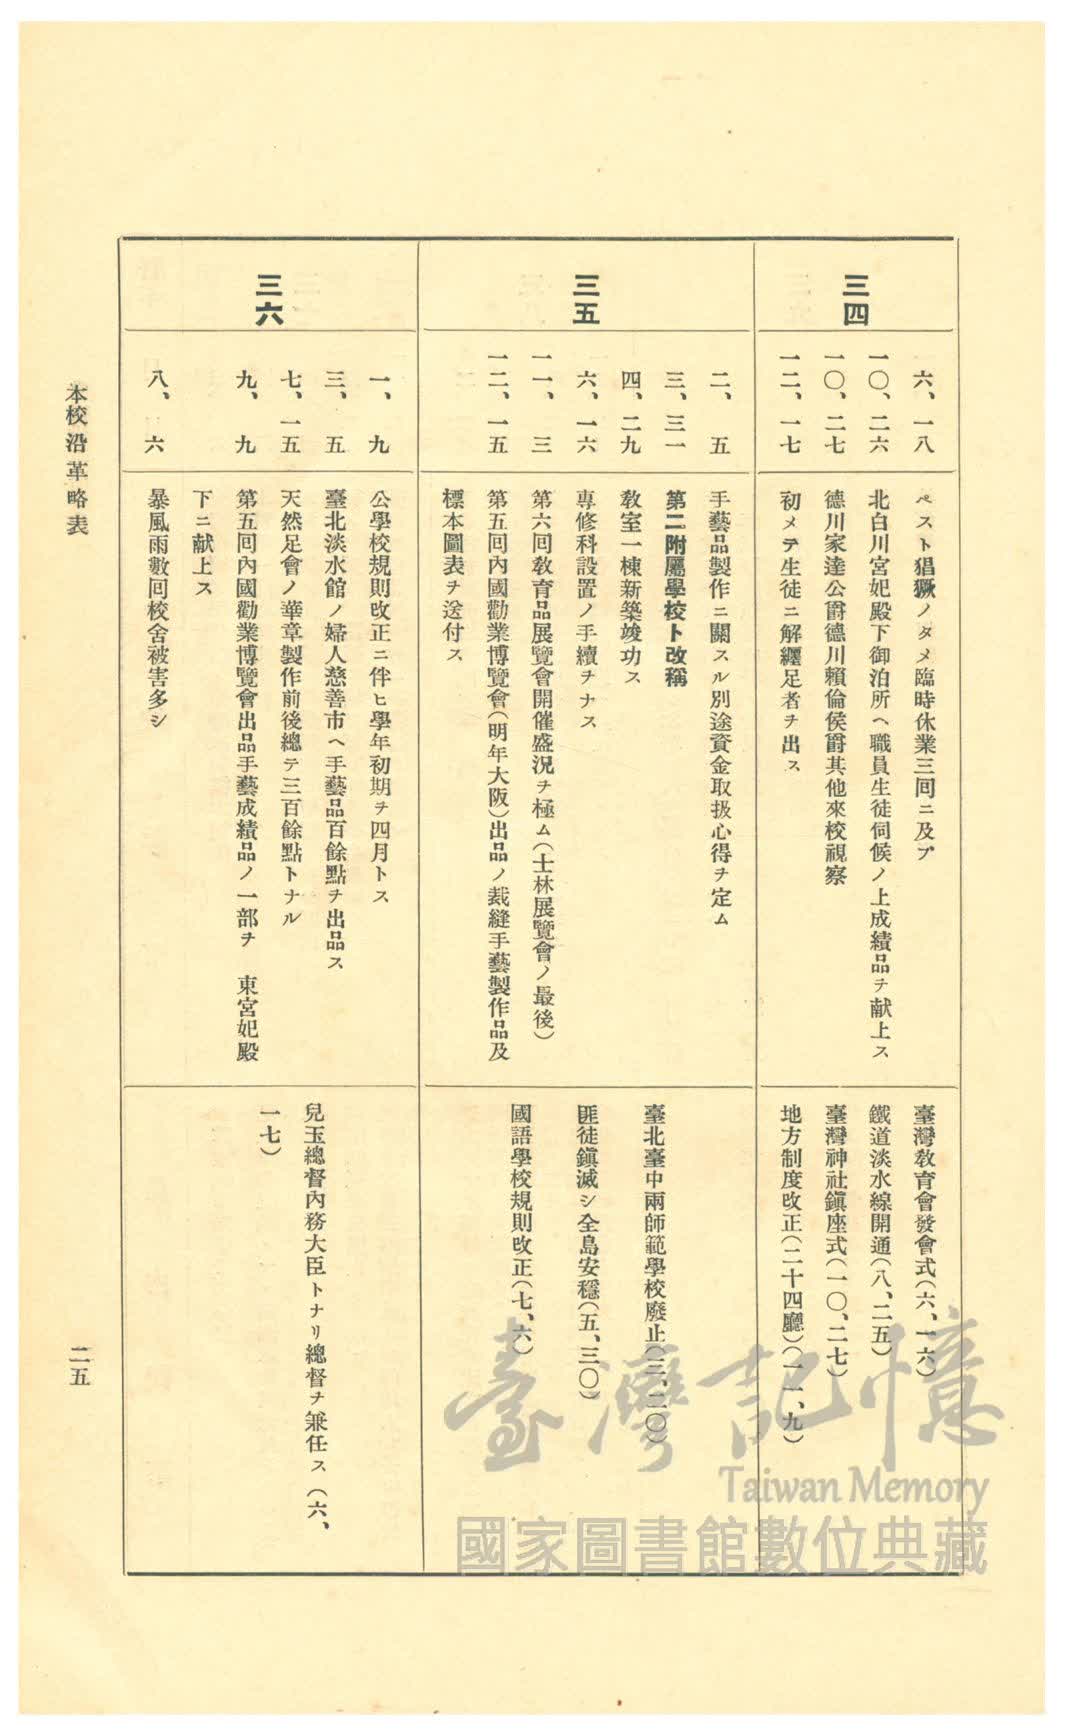 三四
六、一八
ペスト猖獗ノタメ臨時休業三回ニ及ブ
一〇、二六
北白川宮妃殿下御泊所ヘ職員生徒伺候ノ上成績品ヲ献上ス
一〇、二七
德川家達公爵德川賴倫侯爵其他來校視察
一二、一七
初メテ生徒ニ解纏足者ヲ出ス
臺灣敎育會發會式(六、一六)
鐵道淡水線開通(八、二五)
臺灣神社鎭座式(一〇、二七)
地方制度改正(二十四廳)(一一、九)
三五
二、五
手藝品製作ニ關スル別途資金取扱心得ヲ定ム
三、三一
第二附屬學校ト改稱
四、二九
敎室一棟新築竣功ス
六、一六
專修科設置ノ手續ヲナス
一一、三
第六回敎育品展覽會開催盛況ヲ極ム(士林展覽會ノ最後)
一二、一五
第五回內國勸業博覽會(明年大阪)出品ノ裁縫手藝製作品及
標本圖表ヲ送付ス
臺北臺中兩師範學校廢止(三、二〇)
匪徒鎭滅シ全島安穩(五、三〇)
國語學校規則改正(七、六)
三六
一、九
公學校規則改正ニ伴ヒ學年初期ヲ四月トス
三、五
臺北淡水館ノ婦人慈善市ヘ手藝品百餘點ヲ出品ス
七、一五
天然足會ノ華章製作前後總テ三百餘點トナル
九、九
第五回內國勸業博覽會出品手藝成績品ノ一部ヲ 東宮妃殿
下ニ献上ス
八、六
暴風雨數回校舍被害多シ
兒玉總督內務大臣トナリ總督ヲ兼任ス(六、
一七)
本校沿革略表
二五
臺灣記憶
Taiwan Memory
國家圖書館數位典藏